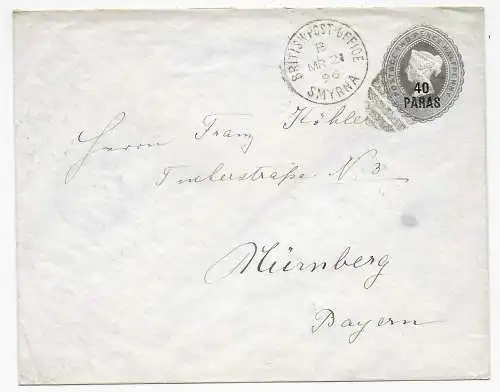 BRITISH POST OFFICE
B
MR 21
96
SMYRNA
40
PARAS
Herrn Franz Köhler
Tucherstraße N. 3
Nürnberg
Bayern